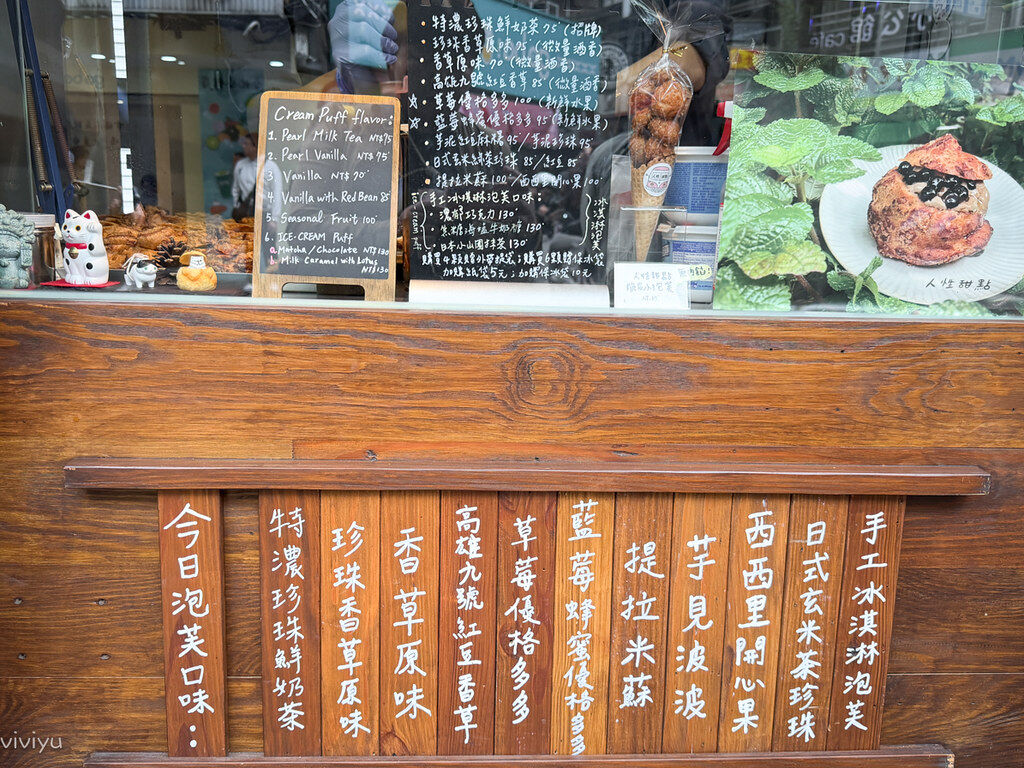 Cream Puff flavor:
1. Pearl Milk Tea NT$75
2. Pearl Vanilla NT$75
3. Vanilla NT$70
4. Vanilla with Red Bean 85
5. Seasonal Fruit 100
6. ICE-CREAM Puff
a. Matcha/Chocolate NT$130
b. Milk Caramel with Lotus NT$130
特濃珍珠鮮奶茶 95 (招牌)
珍珠香草原味 95 (微量酒香)
香草原味 90 (微量酒香)
高雄九號紅豆香草 85 (微量酒香)
草莓優格多多 100 (新鮮水果)
藍莓蜂蜜優格多多 95 (新鮮水果)
芋泥紅豆麻糬 95 / 芋泥珍珠 95
日式玄米綠茶珍珠 85 / 紅豆 85
提拉米蘇 100 / 西西里開心果 100
手工冰淇淋泡芙口味:
濃郁巧克力 130
焦糖海塩牛奶糖 130
日本小山園抹茶 130
冰淇淋泡芙
人性甜點
人性甜點
今日泡芙口味:
特濃珍珠鮮奶茶
珍珠香草原味
香草原味
高雄九號紅豆香草
草莓優格多多
藍莓蜂蜜優格多多
提拉米蘇
芋見波波
西西里開心果
日式玄米茶珍珠
手工冰淇淋泡芙
viviyu